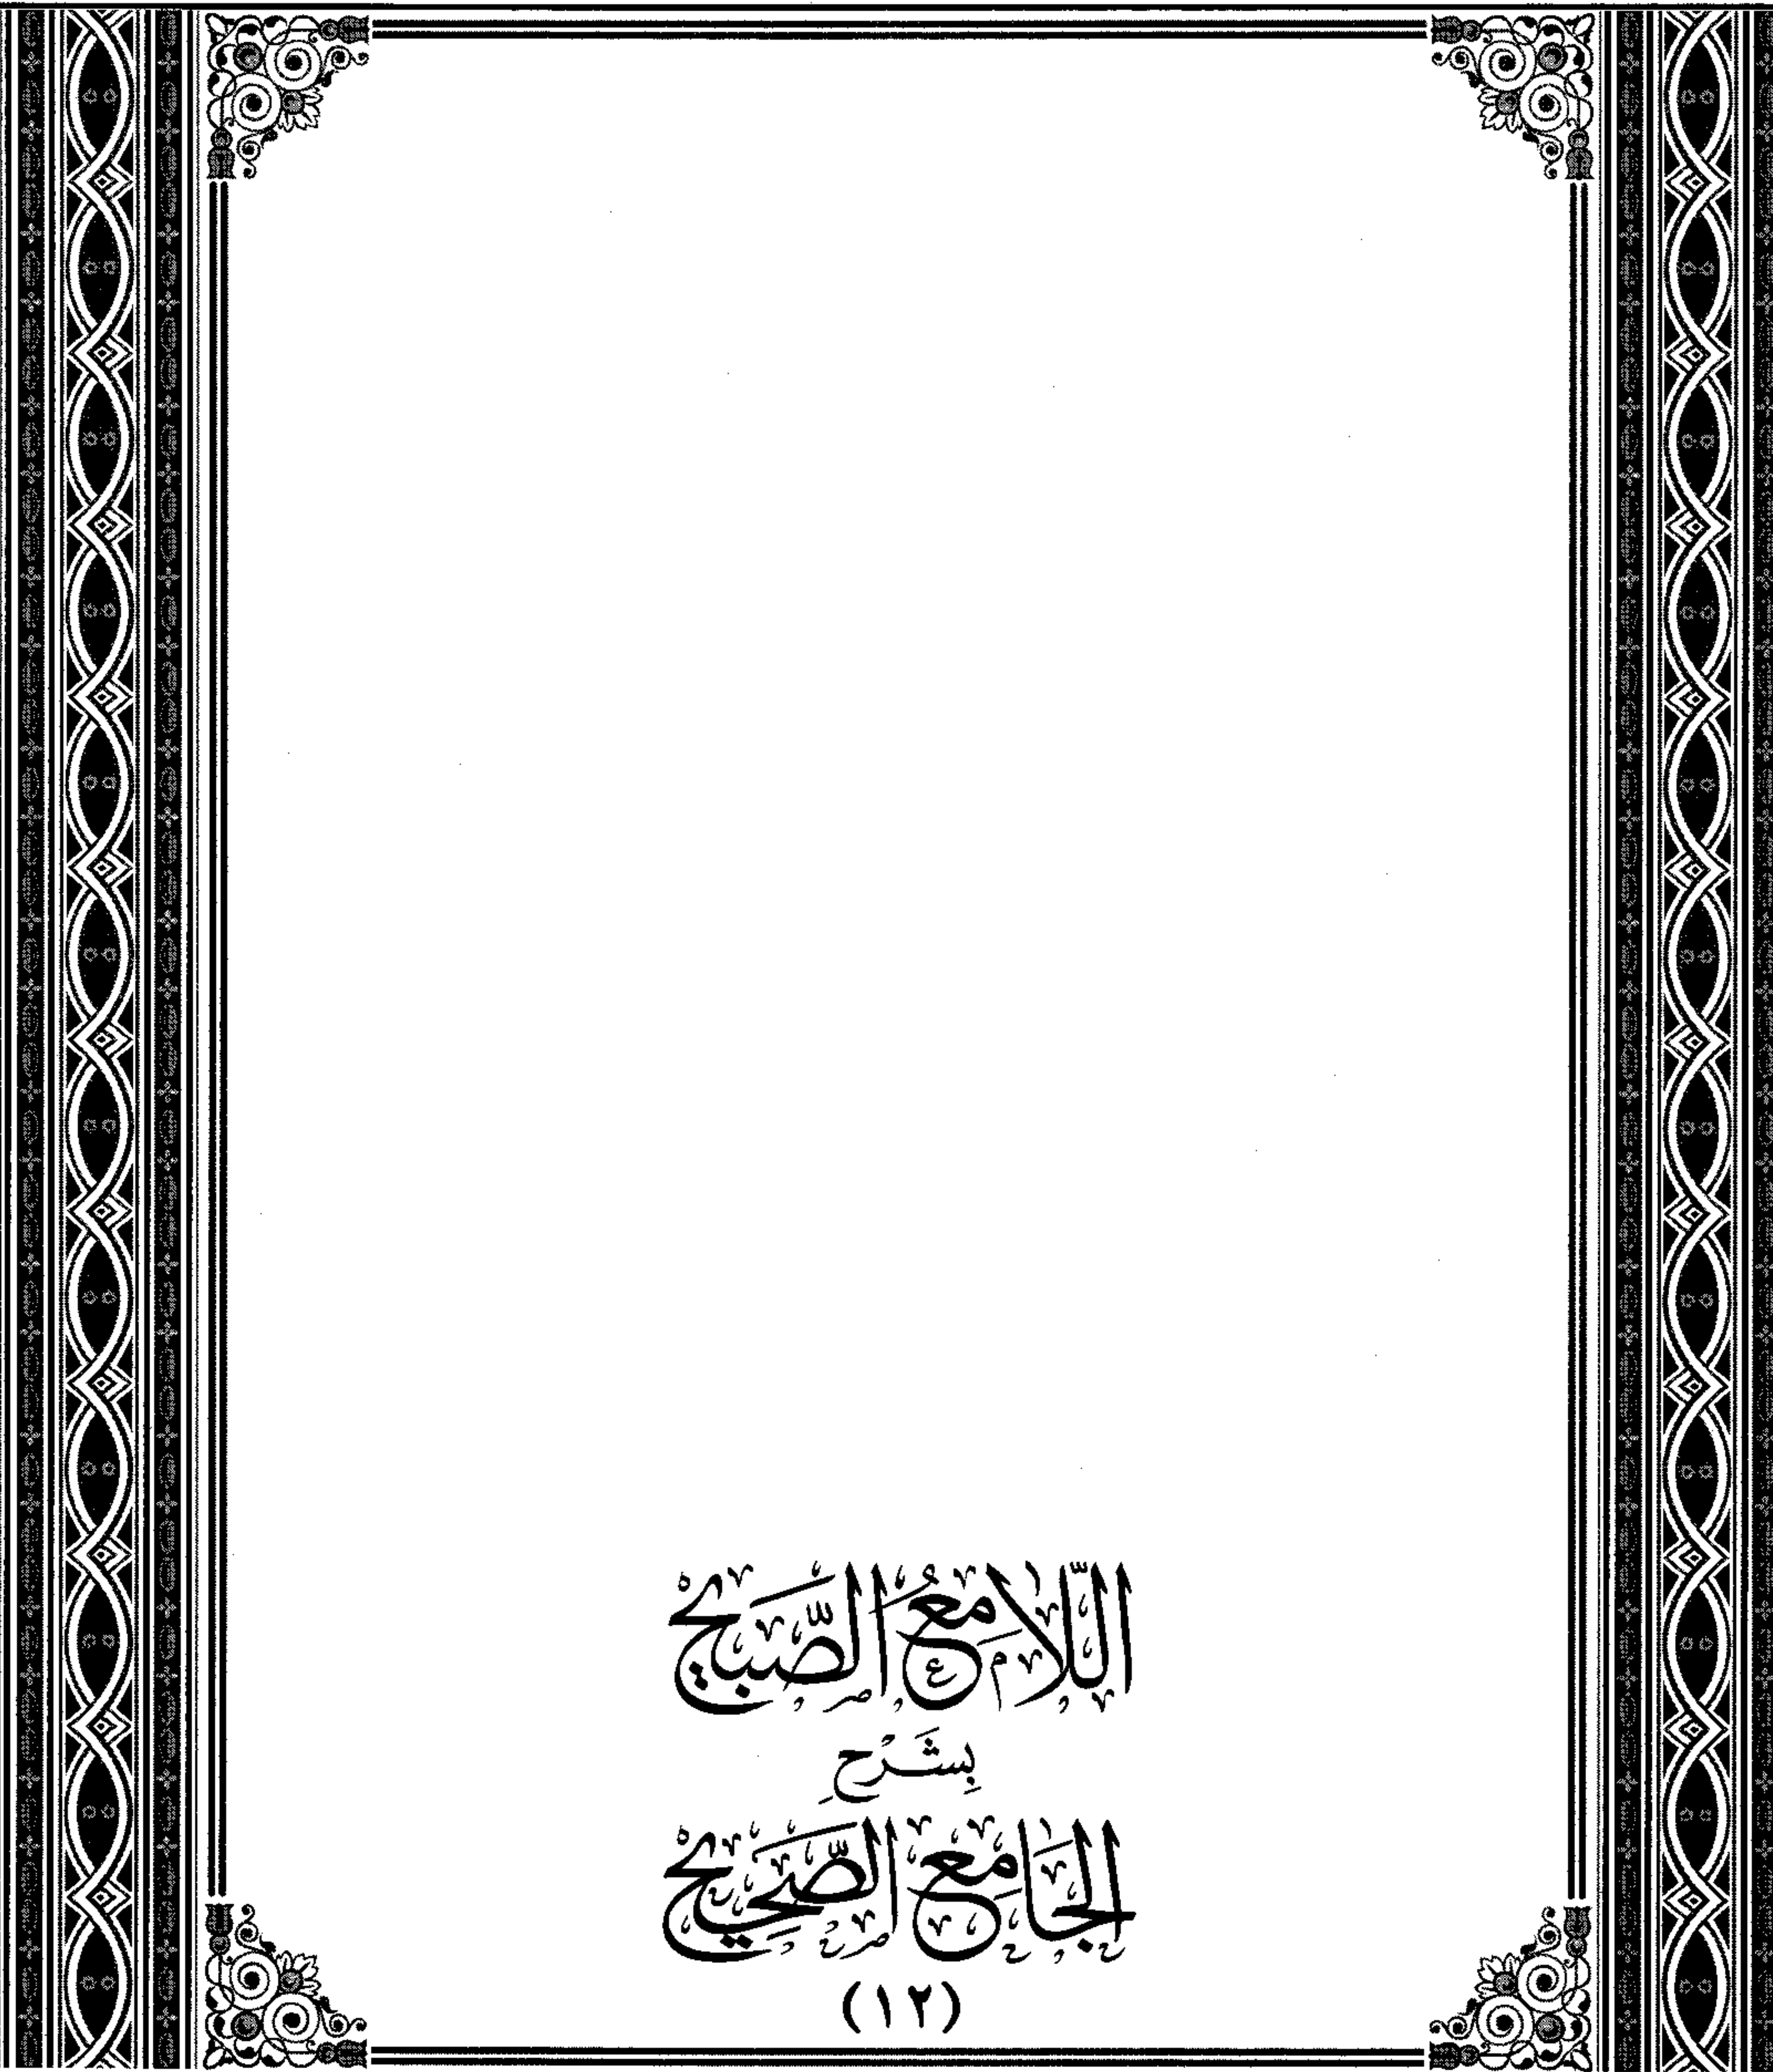 اللَّامِعُ الصَّبِيحُ
بِشَرْحِ
الجَامِعِ الصَّحِيحِ
(١٢)